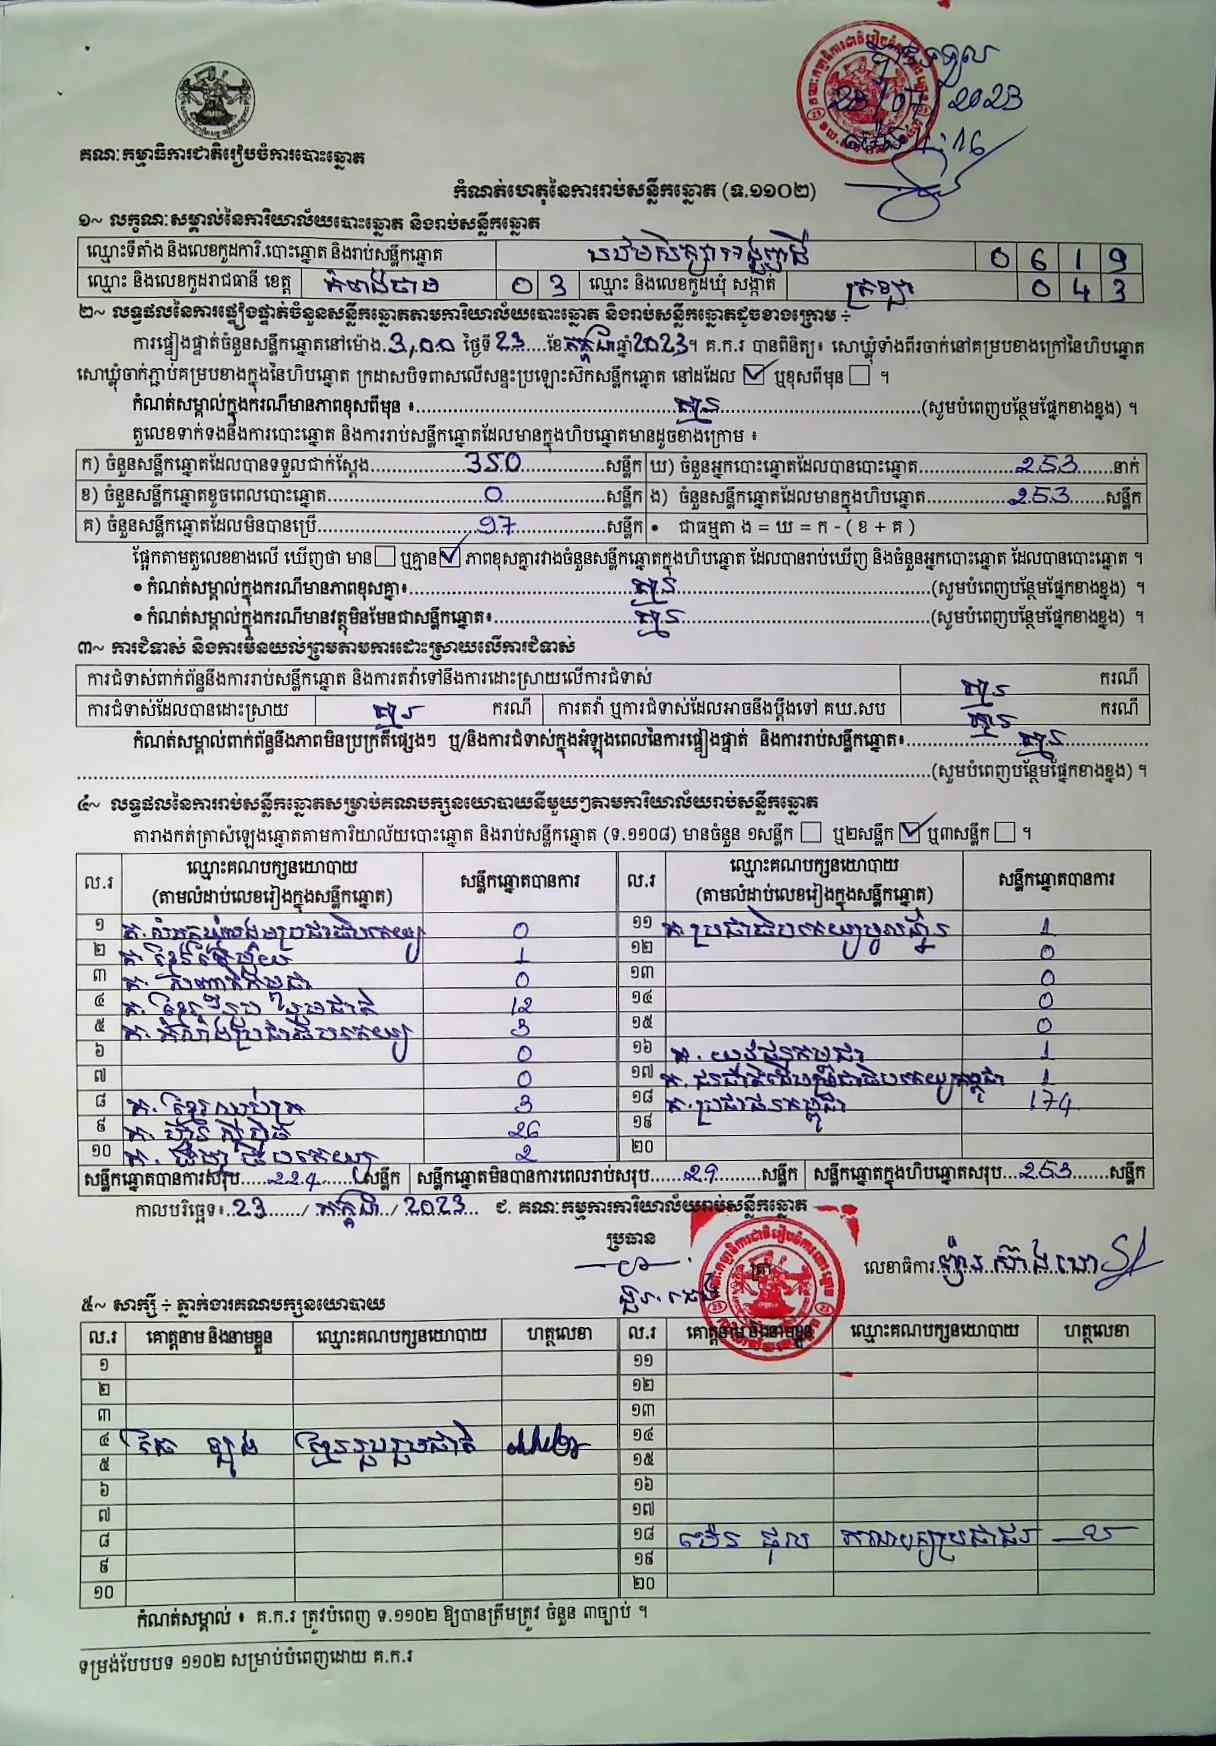 បានទទួល
23/07/2023
ម៉ោង 4:16
គណៈកម្មាធិការជាតិរៀបចំការបោះឆ្នោត
កំណត់ហេតុនៃការរាប់សន្លឹកឆ្នោត (ទ.១១០២)
១~ លក្ខណៈសម្គាល់នៃការិយាល័យបោះឆ្នោត និងរាប់សន្លឹកឆ្នោត
ឈ្មោះទីតាំង និងលេខកូដការិ.បោះឆ្នោត និងរាប់សន្លឹកឆ្នោត 0 6 1 9
ឈ្មោះ និងលេខកូដរាជធានី ខេត្ត កំពង់ចាម 0 3 ឈ្មោះ និងលេខកូដឃុំ សង្កាត់ 0 4 3
២~ លទ្ធផលនៃការផ្ទៀងផ្ទាត់ចំនួនសន្លឹកឆ្នោតតាមការិយាល័យបោះឆ្នោត និងរាប់សន្លឹកឆ្នោតដូចខាងក្រោម ÷
ការផ្ទៀងផ្ទាត់ចំនួនសន្លឹកឆ្នោតនៅម៉ោង.3,00 ថ្ងៃទី 23.....ខែកក្កដាឆ្នាំ2023។ គ.ក.រ បានពិនិត្យ៖ សោឃ្លុំទាំងពីរចាក់នៅគម្របខាងក្រៅនៃហិបឆ្នោត
សោឃ្លុំចាក់ភ្ជាប់គម្របខាងក្នុងនៃហិបឆ្នោត ក្រដាសបិទពាសលើសន្ទះប្រឡោះស៊កសន្លឹកឆ្នោត នៅដដែល ☑ ឬខុសពីមុន ☐ ។
កំណត់សម្គាល់ក្នុងករណីមានភាពខុសពីមុន ៖ គ្មាន (សូមបំពេញបន្ថែមផ្នែកខាងខ្នង) ។
តួលេខទាក់ទងនឹងការបោះឆ្នោត និងការរាប់សន្លឹកឆ្នោតដែលមានក្នុងហិបឆ្នោតមានដូចខាងក្រោម ៖
ក) ចំនួនសន្លឹកឆ្នោតដែលបានទទួលជាក់ស្តែង 350 សន្លឹក ឃ) ចំនួនអ្នកបោះឆ្នោតដែលបានបោះឆ្នោត 253 នាក់
ខ) ចំនួនសន្លឹកឆ្នោតខូចពេលបោះឆ្នោត 0 សន្លឹក ង) ចំនួនសន្លឹកឆ្នោតដែលមានក្នុងហិបឆ្នោត 253 សន្លឹក
គ) ចំនួនសន្លឹកឆ្នោតដែលមិនបានប្រើ 97 សន្លឹក • ជាធម្មតា ង = ឃ = ក - ( ខ + គ )
ផ្អែកតាមតួលេខខាងលើ ឃើញថា មាន ☐ ឬគ្មាន ☑ ភាពខុសគ្នារវាងចំនួនសន្លឹកឆ្នោតក្នុងហិបឆ្នោត ដែលបានរាប់ឃើញ និងចំនួនអ្នកបោះឆ្នោត ដែលបានបោះឆ្នោត ។
• កំណត់សម្គាល់ក្នុងករណីមានភាពខុសគ្នា៖ គ្មាន (សូមបំពេញបន្ថែមផ្នែកខាងខ្នង) ។
• កំណត់សម្គាល់ក្នុងករណីមានវត្ថុមិនមែនជាសន្លឹកឆ្នោត៖ គ្មាន (សូមបំពេញបន្ថែមផ្នែកខាងខ្នង) ។
៣~ ការជំទាស់ និងការមិនយល់ព្រមតាមការដោះស្រាយលើការជំទាស់
ការជំទាស់ពាក់ព័ន្ធនឹងការរាប់សន្លឹកឆ្នោត និងការតវ៉ាទៅនឹងការដោះស្រាយលើការជំទាស់ គ្មាន ករណី
ការជំទាស់ដែលបានដោះស្រាយ គ្មាន ករណី ការតវ៉ា ឬការជំទាស់ដែលអាចនឹងប្តឹងទៅ គឃ.សប គ្មាន ករណី
កំណត់សម្គាល់ពាក់ព័ន្ធនឹងភាពមិនប្រក្រតីផ្សេងៗ ឬ/និងការជំទាស់ក្នុងអំឡុងពេលនៃការផ្ទៀងផ្ទាត់ និងការរាប់សន្លឹកឆ្នោត៖ គ្មាន
(សូមបំពេញបន្ថែមផ្នែកខាងខ្នង) ។
៤~ លទ្ធផលនៃការរាប់សន្លឹកឆ្នោតសម្រាប់គណបក្សនយោបាយនីមួយៗតាមការិយាល័យរាប់សន្លឹកឆ្នោត
តារាងកត់ត្រាសំឡេងឆ្នោតតាមការិយាល័យបោះឆ្នោត និងរាប់សន្លឹកឆ្នោត (ទ.១១០៨) មានចំនួន ១សន្លឹក ☐ ឬ២សន្លឹក ☑ ឬ៣សន្លឹក ☐ ។
ល.រ ឈ្មោះគណបក្សនយោបាយ (តាមលំដាប់លេខរៀងក្នុងសន្លឹកឆ្នោត) សន្លឹកឆ្នោតបានការ ល.រ ឈ្មោះគណបក្សនយោបាយ (តាមលំដាប់លេខរៀងក្នុងសន្លឹកឆ្នោត) សន្លឹកឆ្នោតបានការ
១ គ.សំបុកឃ្មុំសង្គមប្រជាធិបតេយ្យ 0 ១១ គ.ប្រជាធិបតេយ្យមូលដ្ឋាន 1
២ គ. ខ្មែរតែមួយ 1 ១២ 0
៣ គ. សញ្ជាតិកម្ពុជា 0 ១៣ 0
៤ គ. ខ្មែររួបរួមជាតិ 12 ១៤ 0
៥ គ. កម្លាំងប្រជាធិបតេយ្យ 3 ១៥ 0
៦ 0 ១៦ គ. យុវជនកម្ពុជា 1
៧ 0 ១៧ គ. ជនជាតិដើមប្រជាធិបតេយ្យកម្ពុជា 1
៨ គ. ខ្មែរឈប់ក្រ 3 ១៨ គ.ប្រជាជនកម្ពុជា 174
៩ គ. ហ៊្វុនស៊ិនប៉ិច 26 ១៩
១០ គ. ធម្មាធិបតេយ្យ 2 ២០
សន្លឹកឆ្នោតបានការសរុប 224 សន្លឹក សន្លឹកឆ្នោតមិនបានការពេលរាប់សរុប 29 សន្លឹក សន្លឹកឆ្នោតក្នុងហិបឆ្នោតសរុប 253 សន្លឹក
កាលបរិច្ឆេទ៖ 23 / កក្កដា / 2023 ជ. គណៈកម្មការការិយាល័យរាប់សន្លឹកឆ្នោត
ប្រធាន
ត្រា លេខាធិការ
៥~ សាក្សី ÷ ភ្នាក់ងារគណបក្សនយោបាយ
ល.រ គោត្តនាម និងនាមខ្លួន ឈ្មោះគណបក្សនយោបាយ ហត្ថលេខា ល.រ គោត្តនាម និងនាមខ្លួន ឈ្មោះគណបក្សនយោបាយ ហត្ថលេខា
១ ១១
២ ១២
៣ ១៣
៤ ខ្មែររួបរួមជាតិ ១៤
៥ ១៥
៦ ១៦
៧ ១៧
៨ ១៨ ម៉េន ផុល គណបក្សប្រជាជន
៩ ១៩
១០ ២០
កំណត់សម្គាល់ ៖ គ.ក.រ ត្រូវបំពេញ ទ.១១០២ ឱ្យបានត្រឹមត្រូវ ចំនួន ៣ច្បាប់ ។
ទម្រង់បែបបទ ១១០២ សម្រាប់បំពេញដោយ គ.ក.រ